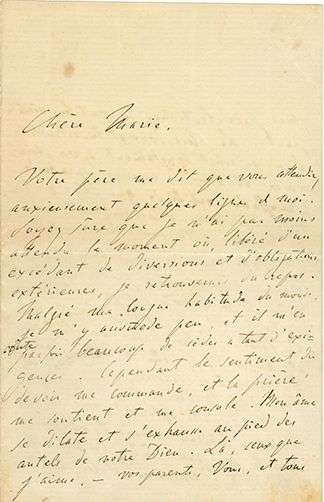 Chère Marie,
Votre père me dit que vous attendez
anxieusement quelques lignes d moi.
Soyez sûre que je n'ai pas moins
attendu le moment où, libéré d'un
excédant de diversions et d'obligations
extérieures, je retrouverais du repos.
Malgré ma longue habitude du monde,
je m'y accomode peu, et il m'en
coûte parfois beaucoup de céder a tant d'exi-
gence. Cependant le sentiment du
devoir me commande, et la prière
me soutient et me console. Mon âme
se dilate et s'exhausse au pied des
autels de notre Dieu. Là, ceux que
j'aime, – vos parents, Vous, et tous